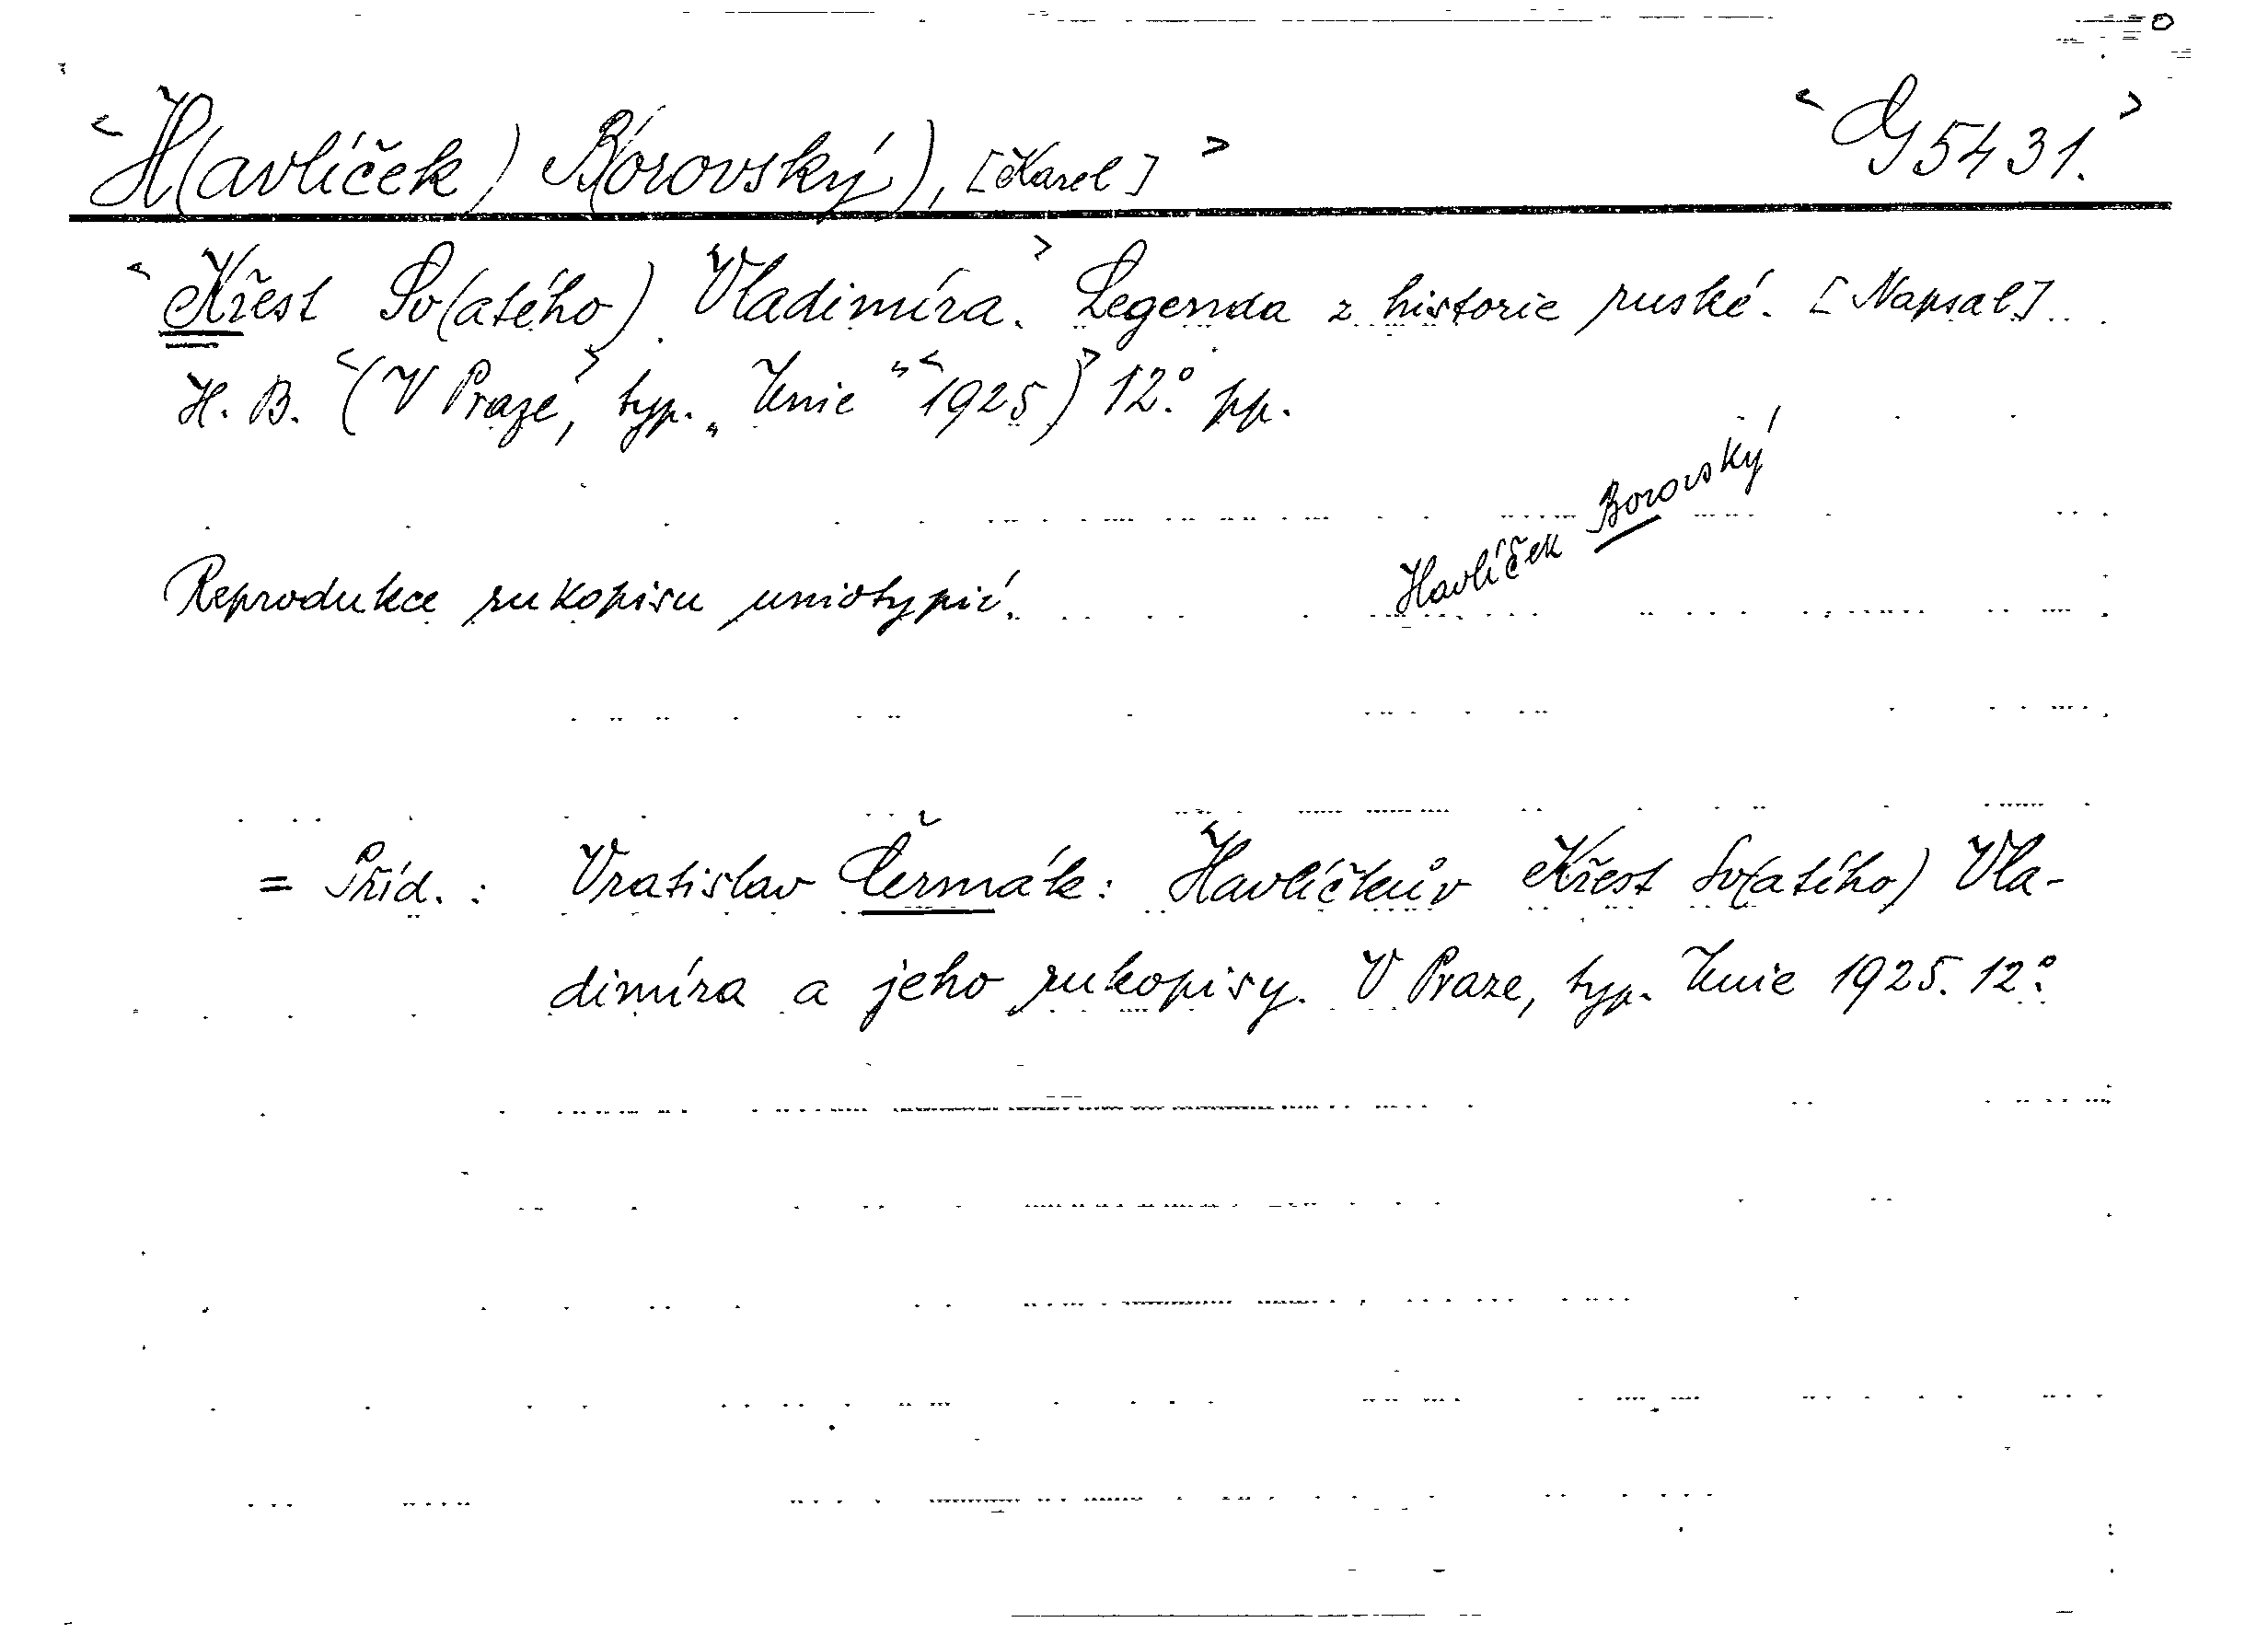 <H(avlíček) B(orovský), [Karel]>
<G 5431.>
<Křest Sv(atého) Vladimíra.> Legenda z historie ruské. [Napsal]
H. B. <(V Praze,> typ. „Unie“ <1925)> 12°. pp.
Havlíček Borovský
Reprodukce rukopisu uniotypií.
= Příd.: Vratislav Čermák: Havlíčkův Křest Sv(atého) Vla-
dimíra a jeho rukopisy. V Praze, typ. Unie 1925. 12°.